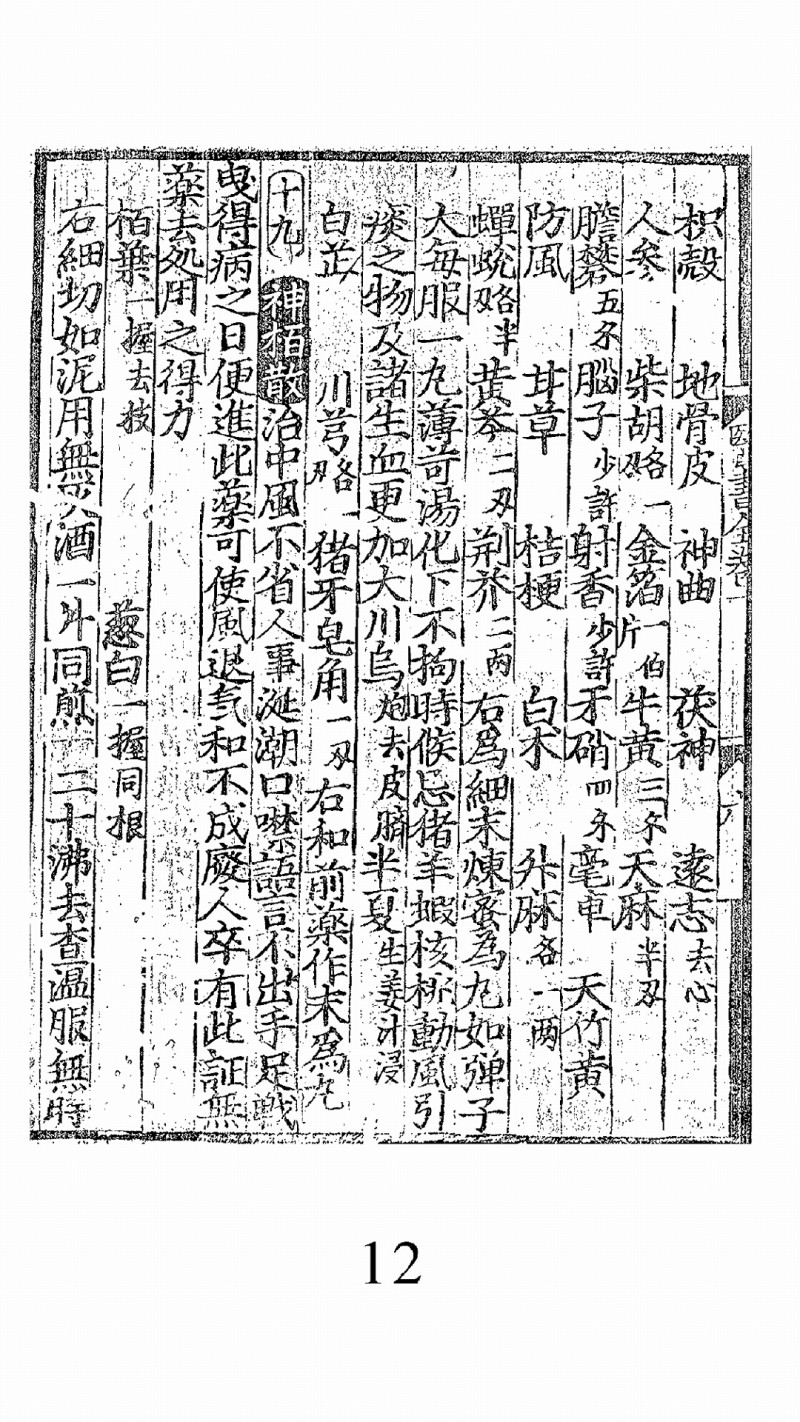 枳殼 地骨皮 神曲 茯神 遠志去心
人參 柴胡各一刄 金箔一伯片 牛黄三分 天麻半刄
膽礬五分 腦子少許 射香少許 牙硝四分 亳車 天竹黄
防風 甘草 桔梗 白木 外麻各一兩
蟬蛻各半刄 黄芩二刄 荆芥二两 右爲細末煉蜜爲九如弹子
大每服一九薄苛湯化下不拘時候忌猪羊蝦核桃動風引
痰之物及諸生血更加大川烏炮去皮臍半夏生姜汁浸
白芷 川芎各一刄 猪牙皂角一刄右和前薬作末爲九
十九 神栢散治中風不省人事涎潮口噤語言不出手足戰
曳得病之日便進此薬可使風退气和不成廢人卒有此証無
薬去処用之得力
栢葉一握去技 葱白一握同根
右細切如泥用無灰酒一外同煎一二十沸去查温服無時
12